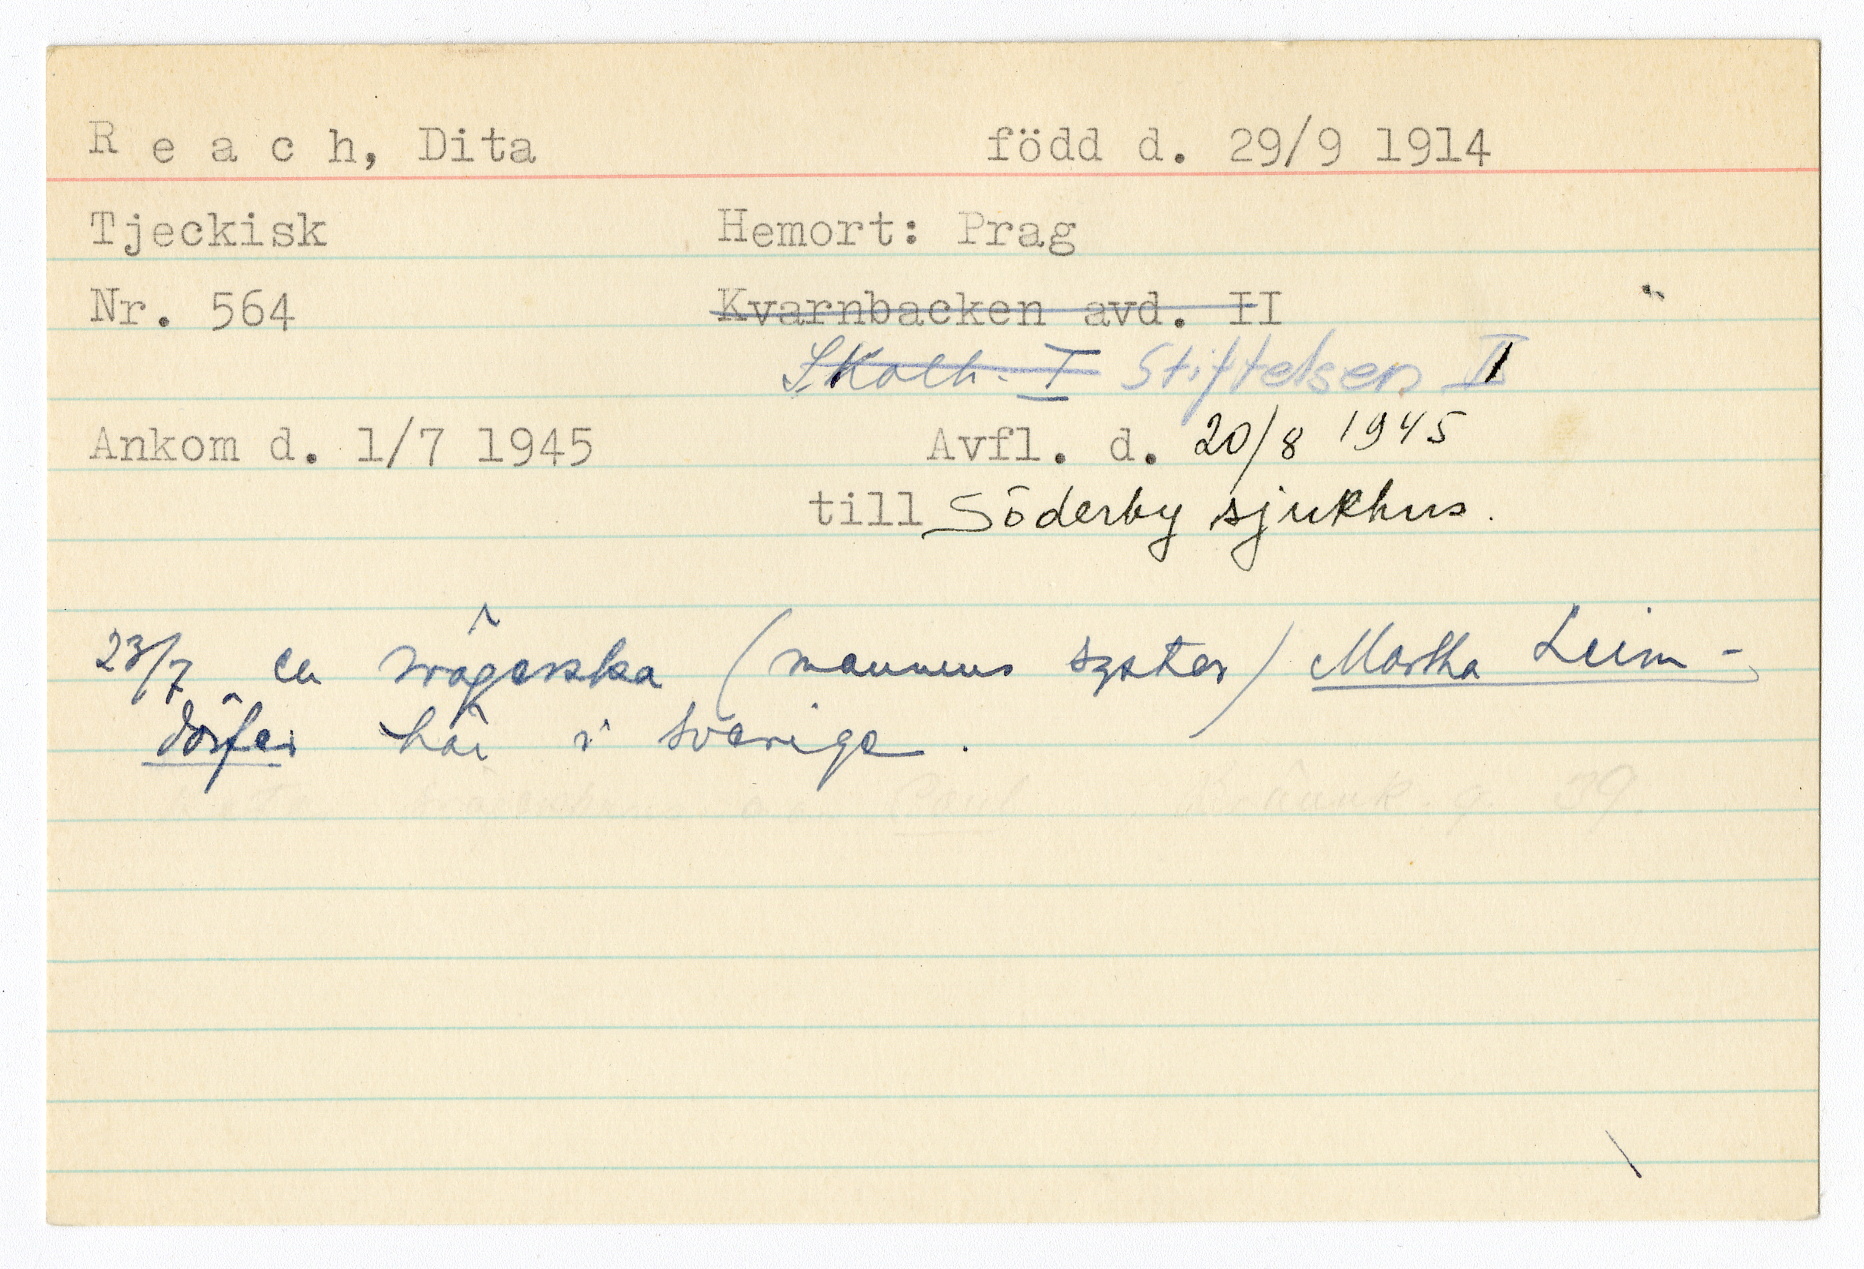 Reach, Dita född d. 29/9 1914
Tjeckisk Hemort: Prag
Nr. 564 Kvarnbacken avd. II
Stiftelsen II
Ankom d. 1/7 1945 Avfl. d. 20/8 1945
till Söderby sjukhus.
23/7 en svägerska (mannens syster) Martha Leim-
dörfer här i Sverige.